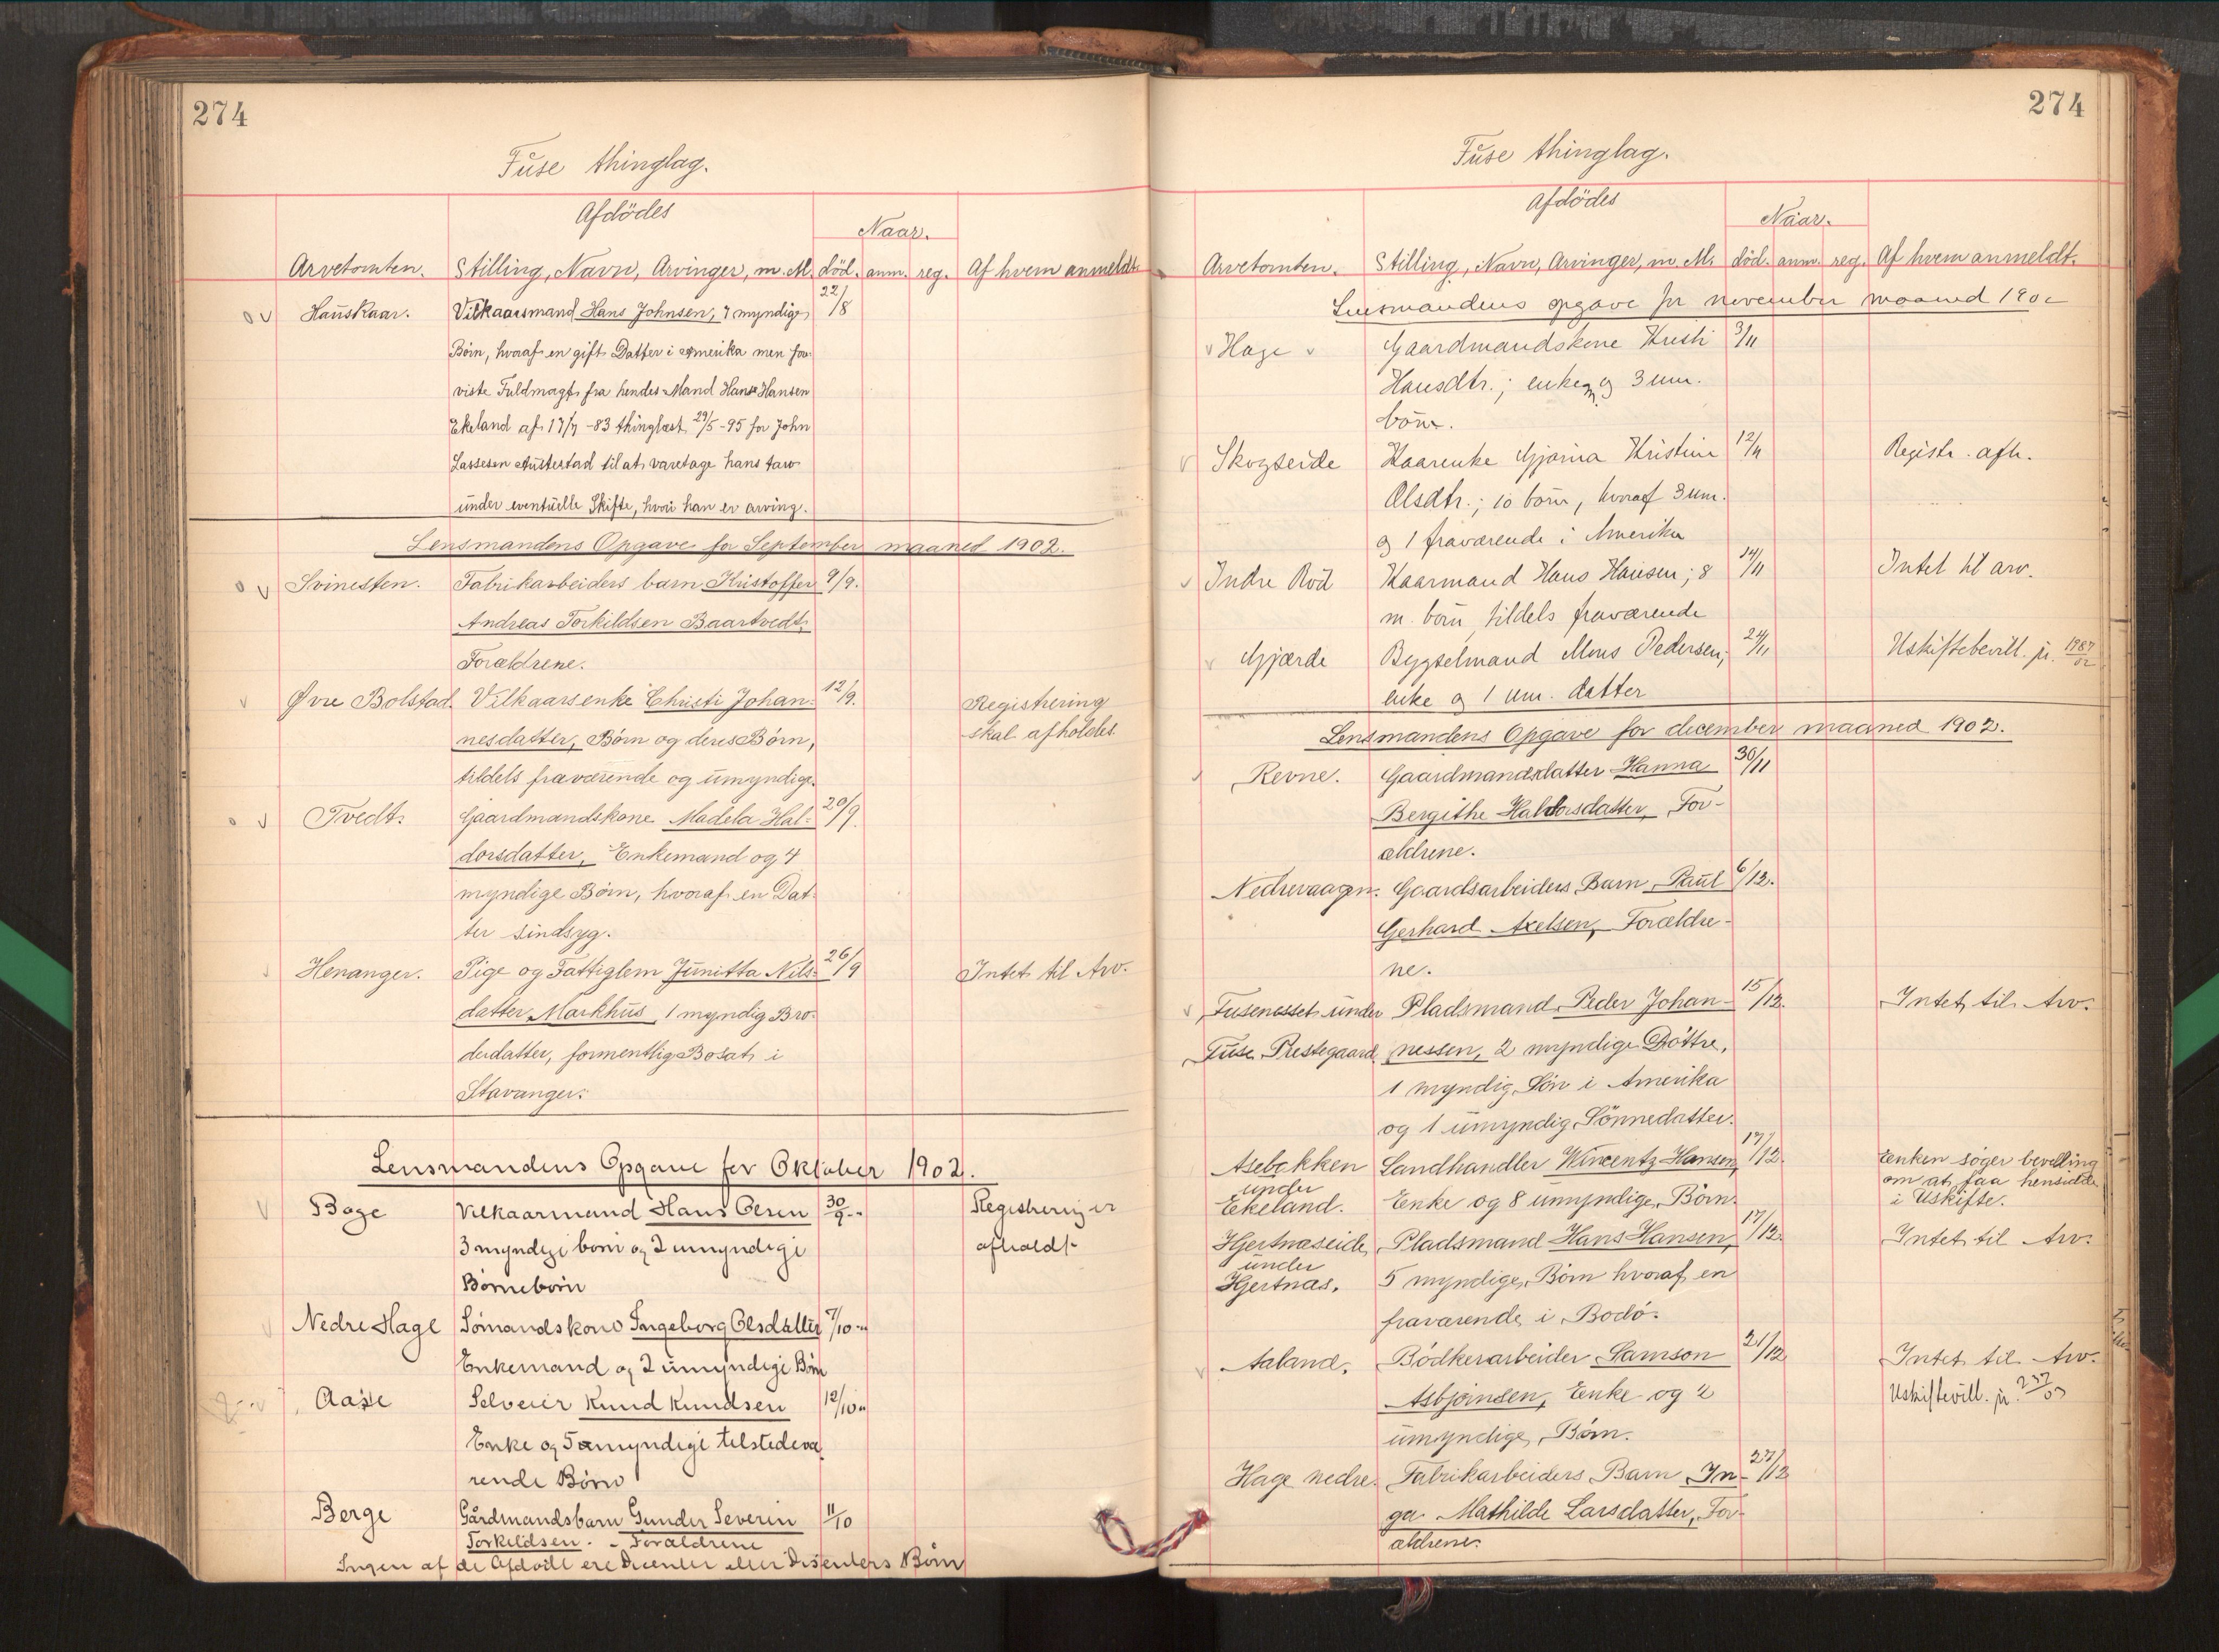 274
Fuse thinglag.
Afdödes
Naar.
Arvetomten. Stilling, Navn, Arvinger, m. M. död. anm. reg. Af hvem anmeldt.
Hauskaar. Vilkaarsmand Hans Johnsen, 7 myndige 22/8
Börn, hvoraf en gift Datter i Amerika men fore-
viste Fuldmagt fra hendes Mand Hans Hansen
Ekeland af 17/7 -83 thinglæst 29/5 -95 for John
Lassesen Austestad til at varetage hans tarv
under eventuelle Skifte, hvori han er arving.
Lensmandens Opgave for September maaned 1902.
Svinesten. Fabrikarbeiders barn Kristoffer 9/9.
Andreas Torkildsen Baartvedt,
Forældrene.
Øvre Bolstad. Vilkaarsenke Christi Johan- 12/9. Registrering
nesdatter, Börn og deres Börn, skal afholdes
tildels fraværende og umyndige.
Tvedt. Gaardmandskone Madela Hal- 20/9.
dorsdatter, Enkemand og 4
myndige Börn, hvoraf en Dat-
ter sindsyg.
Henanger. Pige og Fattiglem Junitta Nils- 26/9 Intet til Arv.
datter Markhus, 1 myndig Bro-
derdatter, formentlig Bosat i
Stavanger.
Lensmandens Opgave for Oktober 1902.
Boge Vilkaarmand Hans Olsen 30/9 Registrering er
3 myndige börn og 2 umyndige afholdt
Börnebörn
Nedre Hage Sömandskone Ingeborg Olsdatter 7/10
Enkemand og 2 umyndige Börn
Aase Selveier Knud Knudsen 12/10
Enke og 5 umyndige tilstedevæ
rende Börn
Berge Gårdmandsbarn Gunder Severin 11/10
Torkildsen. - Forældrene
Ingen af de Afdöde ere Dicenter eller Disenters Börn
274
Fuse thinglag.
Afdödes
Naar.
Arvetomten. Stilling, Navn, Arvinger, m. M. död. anm. reg. Af hvem anmeldt.
Lensmandens opgave for november maaned 1902
Hage Gaardmandskone Kristi 3/11
Hansdtr.; enkem. og 3 um.
börn.
Skogseide Kaarenke Gjörina Kristine 12/11 Registr. afh.
Olsdtr.; 10 börn, hvoraf 3 um.
og 1 fraværende i Amerika
Indre Röd Kaarmand Hans Hansen; 8 14/11 Intet til arv.
m. börn, tildels fraværende
Gjærde Bygselmand Mons Pedersen; 24/11 Uskiftebevill. jr. 1987/02
enke og 1 um. datter
Lensmandens Opgave for december maaned 1902.
Revne. Gaardmandsdatter Hanna 30/11
Bergithe Haldorsdatter, For-
ældrene.
Nedrevaagen. Gaardsarbeiders Barn Paul 6/12.
Gerhard Axelsen, Forældre-
ne.
Fusenesset under Pladsmand Peder Johan- 15/12. Intet til Arv.
Fuse Prestegaard. nessen, 2 myndige Döttre,
1 myndig Sön i Amerika
og 1 umyndig Sönnedatter.
Asebakken Landhandler Wincentz Hansen, 17/12. Enken söger bevilling
under om at faa hensidde
Ekeland. Enke og 8 umyndige Börn. i Uskifte.
Hjertnæseide Pladsmand Hans Hansen, 17/12. Intet til Arv.
under
Hjertnæs. 5 myndige Börn hvoraf en
fraværende i Bodö.
Aaland. Bödkerarbeider Samson 21/12 Intet til Arv.
Asbjörnsen, Enke og 2 Uskiftevill. jr. 237/03
umyndige Börn.
Hage nedre. Fabrikarbeiders Barn In- 27/12
ga Mathilde Larsdatter, For-
ældrene.